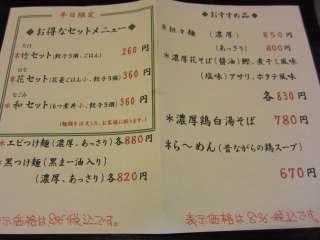 平日限定
お得なセットメニュー
たけ
*竹セット(餃子3個、ごはん) 260円
はな
*花セット 360円
なごみ
*和セット 360円
*エビつけ麺(濃厚、あっさり)各880円
*黒つけ麺(黒まー油入り)
(濃厚、あっさり)各820円
表示価格は8%税込です。
おすすめ品
*担々麺 (濃厚) 850円
(あっさり) 800円
*濃厚花そば(醤油)鰹、煮干し風味
(塩味)アサリ、ホタテ風味
各830円
*濃厚鶏白湯そば 780円
*ら〜めん(昔ながらの鶏スープ)
670円
表示価格は8%税込です。